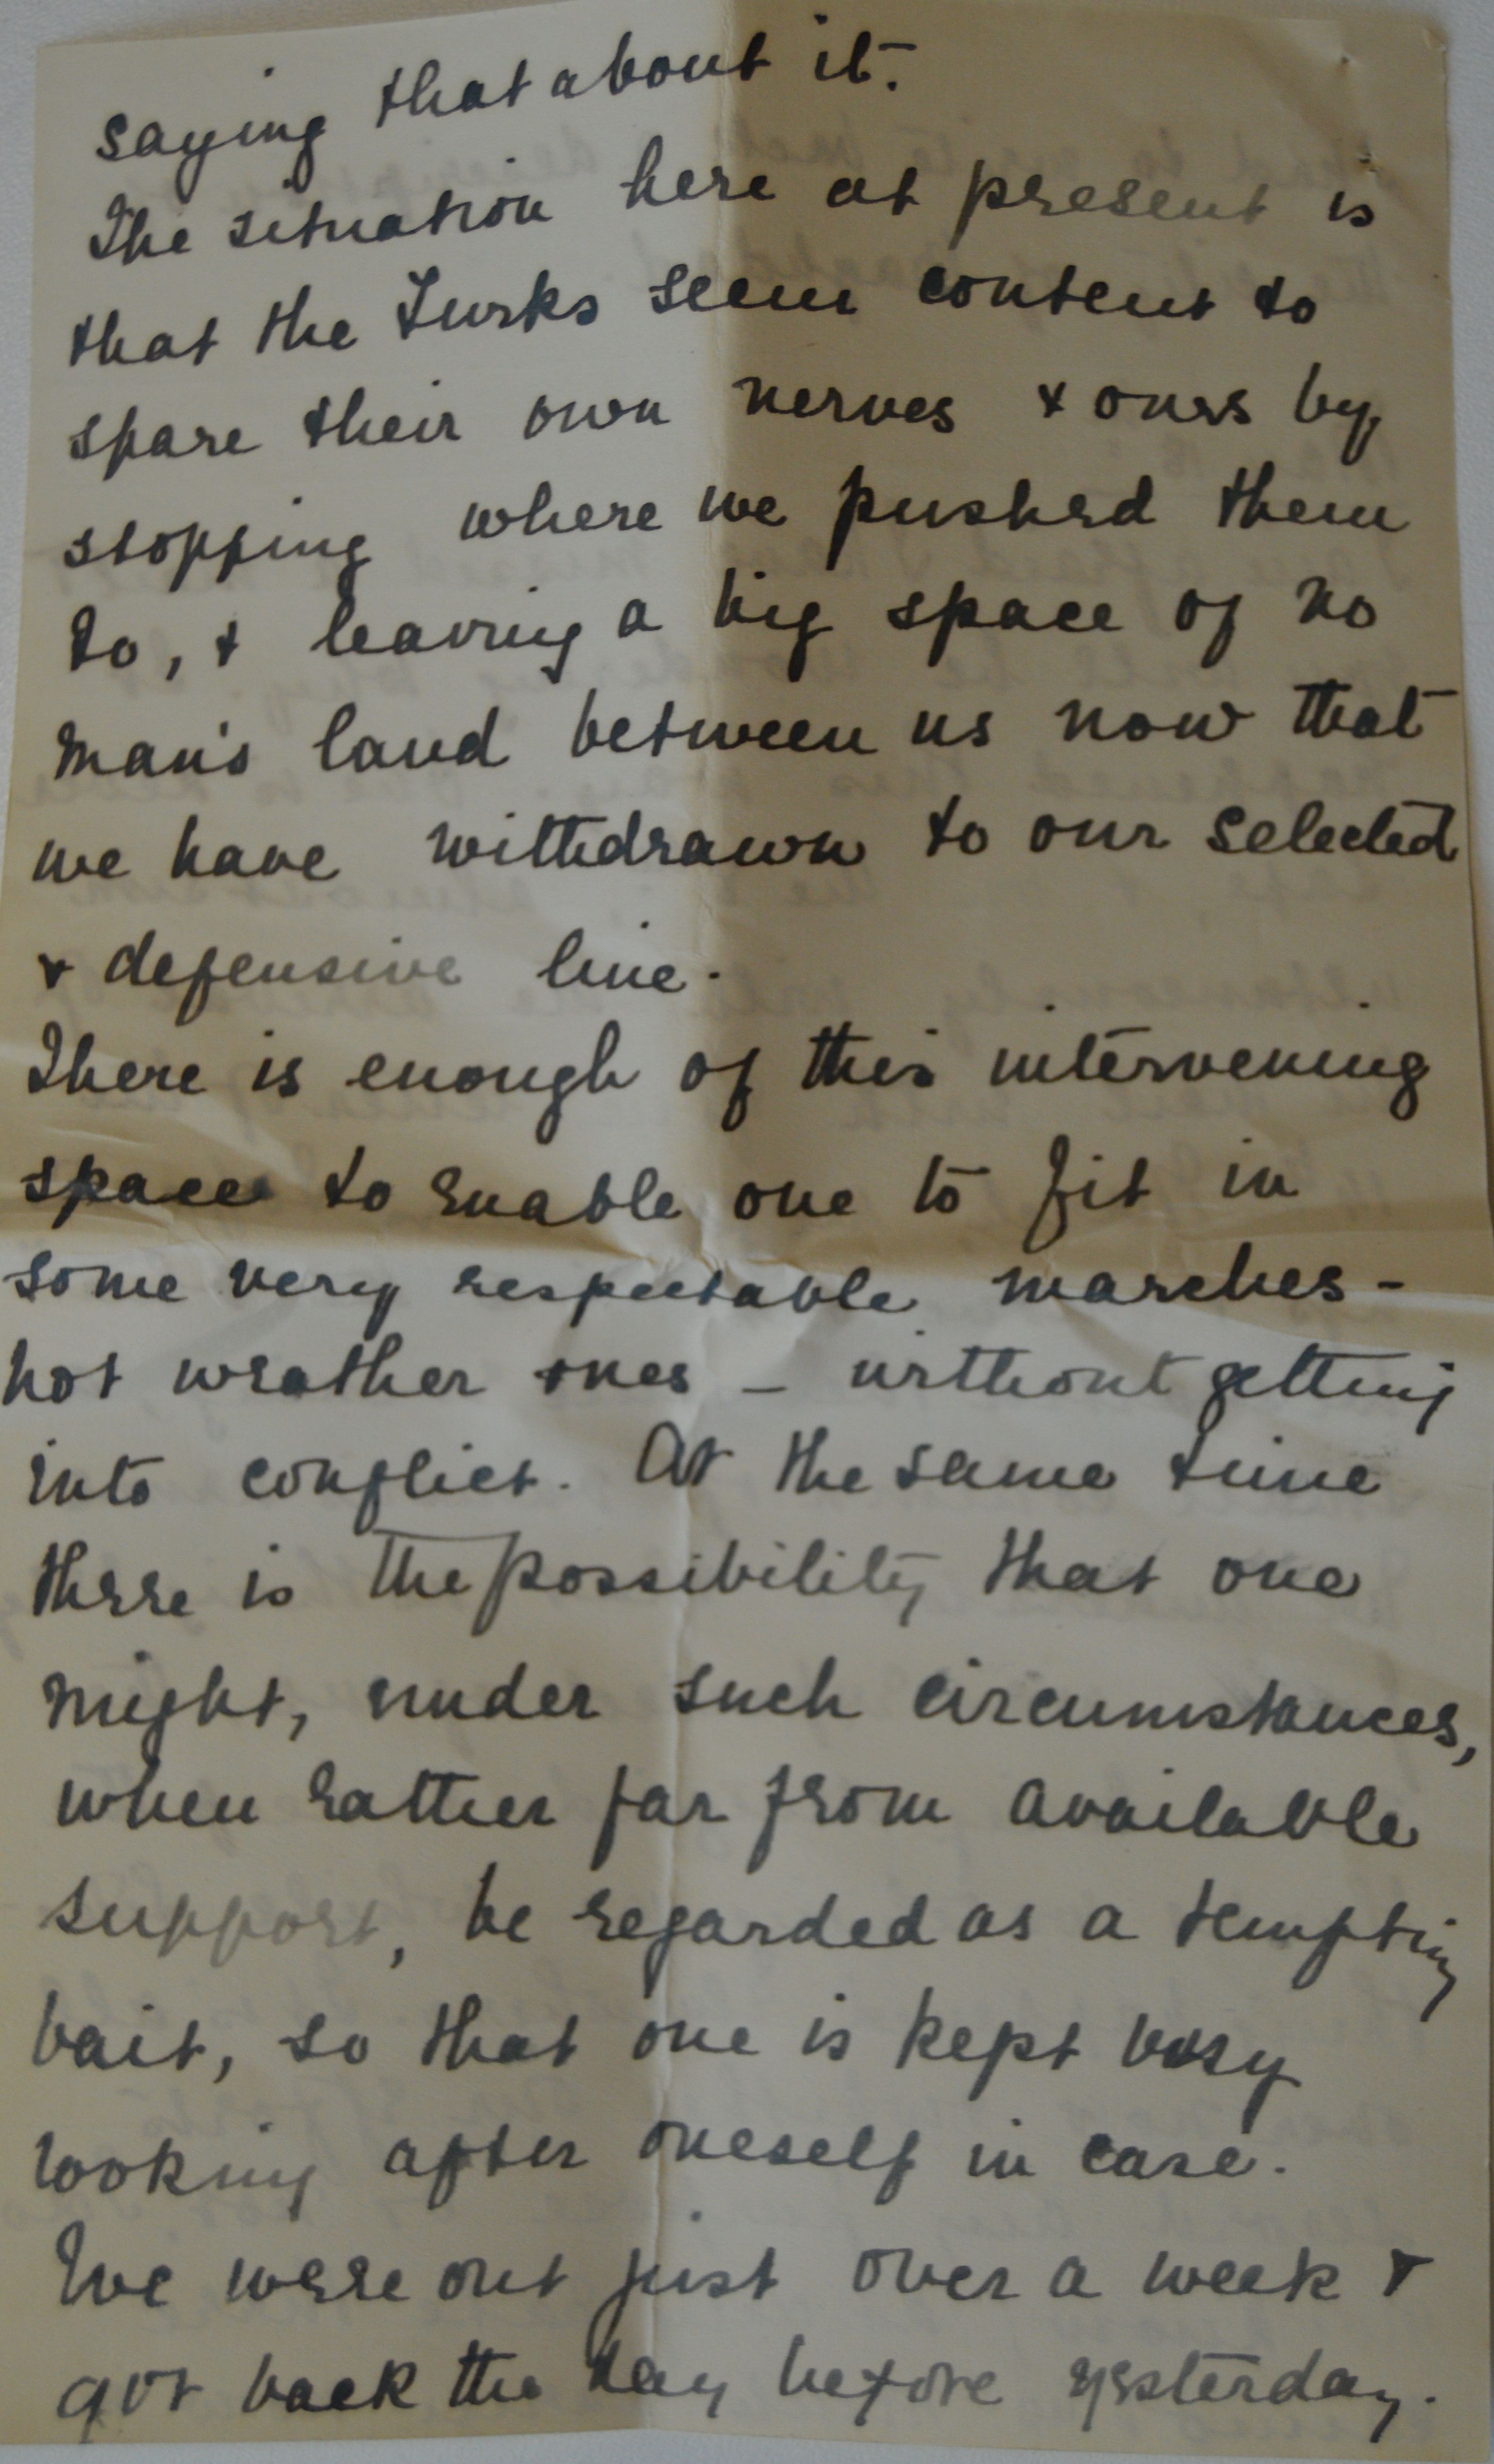 saying that about it.
The situation here at present is
that the Turks seem content to
spare their own nerves & ours by
stopping where we pushed them
to, & leaving a big space of no
man's land between us now that
we have withdrawn to our selected
& defensive line.
There is enough of this intervening
space to enable one to fit in
some very respectable marches -
hot weather ones - without getting
into conflict. At the same time
there is the possibility that one
might, under such circumstances,
when rather far from available
support, be regarded as a tempting
bait, so that one is kept busy
looking after oneself in case.
We were out just over a week &
got back the day before yesterday.